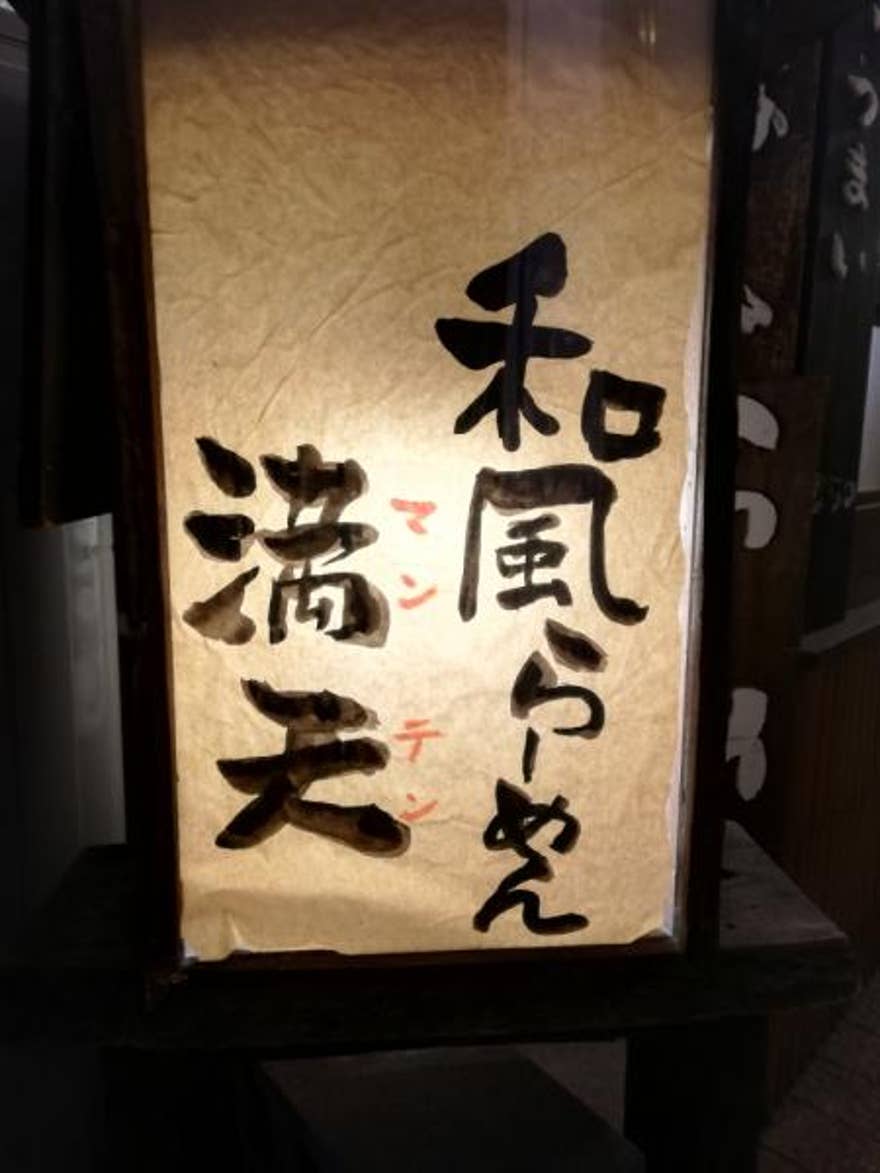 和風らーめん
マンテン
満天